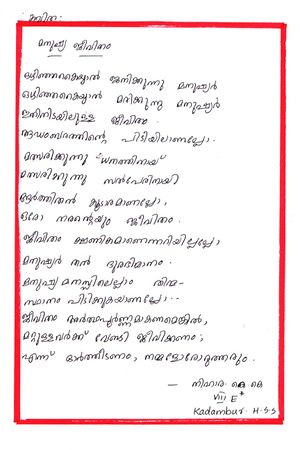 കവിത:
മനുഷ്യ ജീവിതം
ഒഴിഞ്ഞകൈയ്യാൽ ജനിക്കുന്നു മനുഷ്യർ
ഒഴിഞ്ഞകൈയ്യാൽ മരിക്കുന്നു മനുഷ്യർ
ഇതിനിടയിലുള്ള ജീവിതം
ആഡംബരത്തിന്റെ പിടിയിലാണല്ലോ
മത്സരിക്കുന്നു ധനത്തിനായ്
മത്സരിക്കുന്നു സൽപേരിനായി
ആർത്തിതൻ കൂടാരമാണല്ലോ,
ഒരോ നരന്റെയും ജീവിതം.
ജീവിതം ക്ഷണികമാണെന്നറിയില്ലല്ലോ
മനുഷ്യർ തൻ ദുരഭിമാനം.
മനുഷ്യ മനസ്സിലെല്ലാം തിന്മ-
സ്ഥാനം പിടിക്കുകയാണല്ലോ..
ജീവിതം അർത്ഥപൂർണ്ണമാകണമെങ്കിൽ,
മറ്റുള്ളവർക്ക് വേണ്ടി ജീവിക്കണം;
എന്ന് ഓർത്തിടണം, നമ്മളോരോരുത്തരും.
— നിഹാര കെ കെ
VIII E
Kadambur. H.S.S